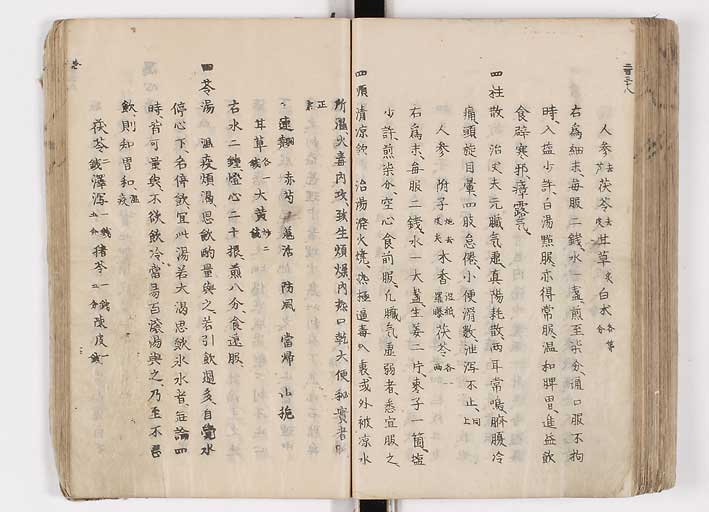 人参 去芦 茯苓 去皮 甘草 炙 白朮 各等分
右為細末毎服二銭水一盞煎至柒分通口服不拘
時入塩少許白湯點服亦得常服温和脾胃進益飲
食辟寒邪瘴露気
四柱散 治丈夫元臓気虚真陽耗散両耳常鳴臍腹冷
痛頭旋目暈四肢怠倦小便滑数泄瀉不止 同上
人参 附子 炮去皮尖 木香 湿紙裹煨 茯苓 各一両
右為末毎服二銭水一大盞生姜二片棗子一箇塩
少許煎柒分空心食前服凡臓気虚弱者悉宜服之
四順清凉飲 治湯溌火焼熱極逼毒入裏或外被凉水
所逼火毒内攻致生煩燥内熱口乾大便秘實者
連翹 赤芍 羌活 防風 當帰 山梔
甘草 各一銭 大黄 炒二銭
右水二鍾燈心二十根煎八分食遠服
四苓湯 温疫煩渇思飲酌量與之若引飲過多自覺水
停心下名停飲宜此湯若大渇思飲氷水者無論四
時皆可量與不欲飲冷當易百滾湯與之乃至不思
飲則知胃和 温疫
茯苓 二銭 澤瀉 一銭五分 猪苓 一銭五分 陳皮 一銭